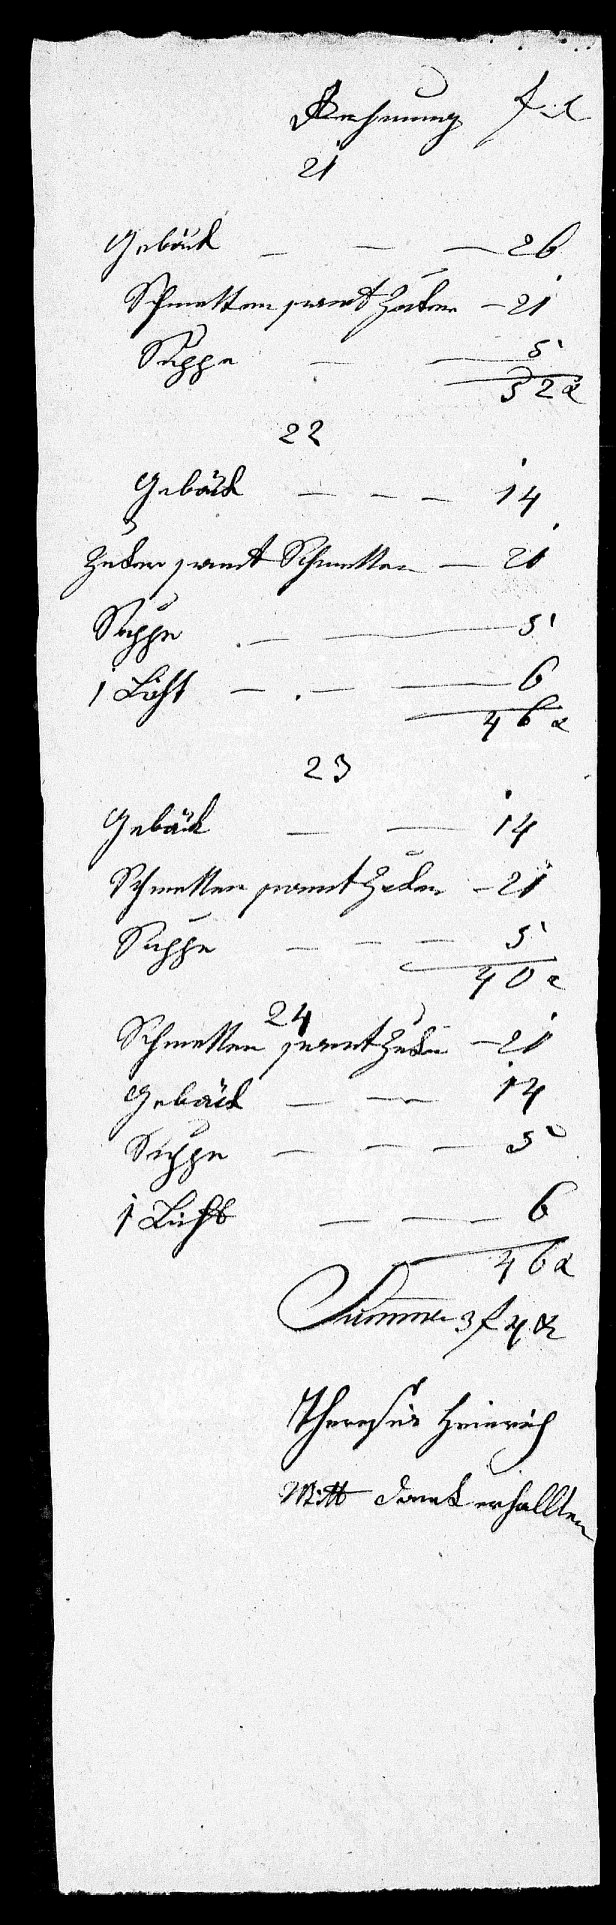 Rechnung f x
21
Gebäck — — — 26
Schmetten samt Zuker — 21
Suppe — — 5
52 x
22
Gebäck — — — 14
Zuker samt Schmetten — 21
Suppe — — 5
1 Licht — — — 6
46 x
23
Gebäck — — 14
Schmetten samt Zuker — 21
Suppe — — — 5
40 x
24
Schmetten samt Zuker — 21
Gebäck — — 14
Suppe — — — 5
1 Licht — — — 6
46 x
Summa 3 f 4 x
Theresia Heinrich
Mitt Dank erhallten